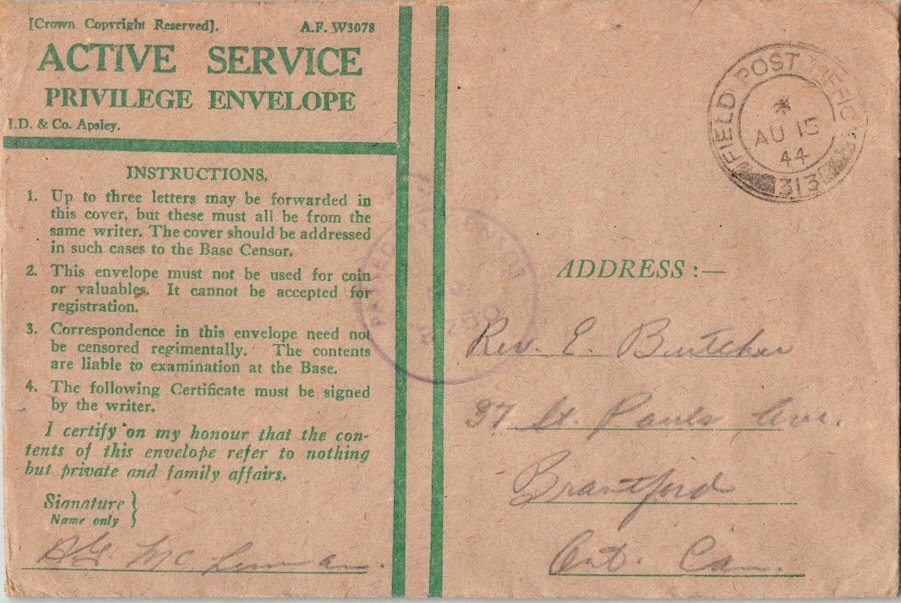 [Crown Copyright Reserved]. A.F. W3078
ACTIVE SERVICE
PRIVILEGE ENVELOPE
J.D. & Co. Apsley.
INSTRUCTIONS.
1. Up to three letters may be forwarded in
this cover, but these must all be from the
same writer. The cover should be addressed
in such cases to the Base Censor.
2. This envelope must not be used for coin
or valuables. It cannot be accepted for
registration.
3. Correspondence in this envelope need not
be censored regimentally. The contents
are liable to examination at the Base.
4. The following Certificate must be signed
by the writer.
I certify on my honour that the con-
tents of this envelope refer to nothing
but private and family affairs.
Signature }
Name only
FIELD POST OFFICE
AU 15
44
313
ADDRESS :—
Rev. E. Butcher
87 St. Pauls Ave.
Brantford
Ont. Can.